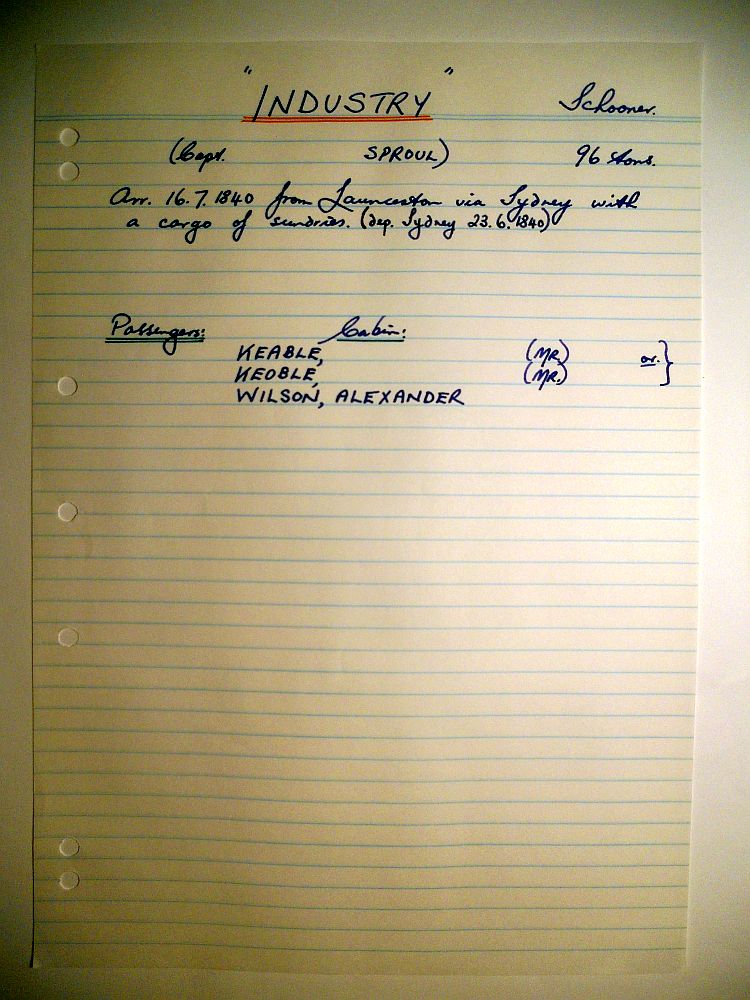 "INDUSTRY" Schooner.
(Capt. SPROUL) 96 tons.
Arr. 16.7.1840 from Launceston via Sydney with
a cargo of sundries. (dep. Sydney 23.6.1840)
Passengers: Cabin:
KEABLE, (MR.) or. }
KEOBLE, (MR.)
WILSON, ALEXANDER